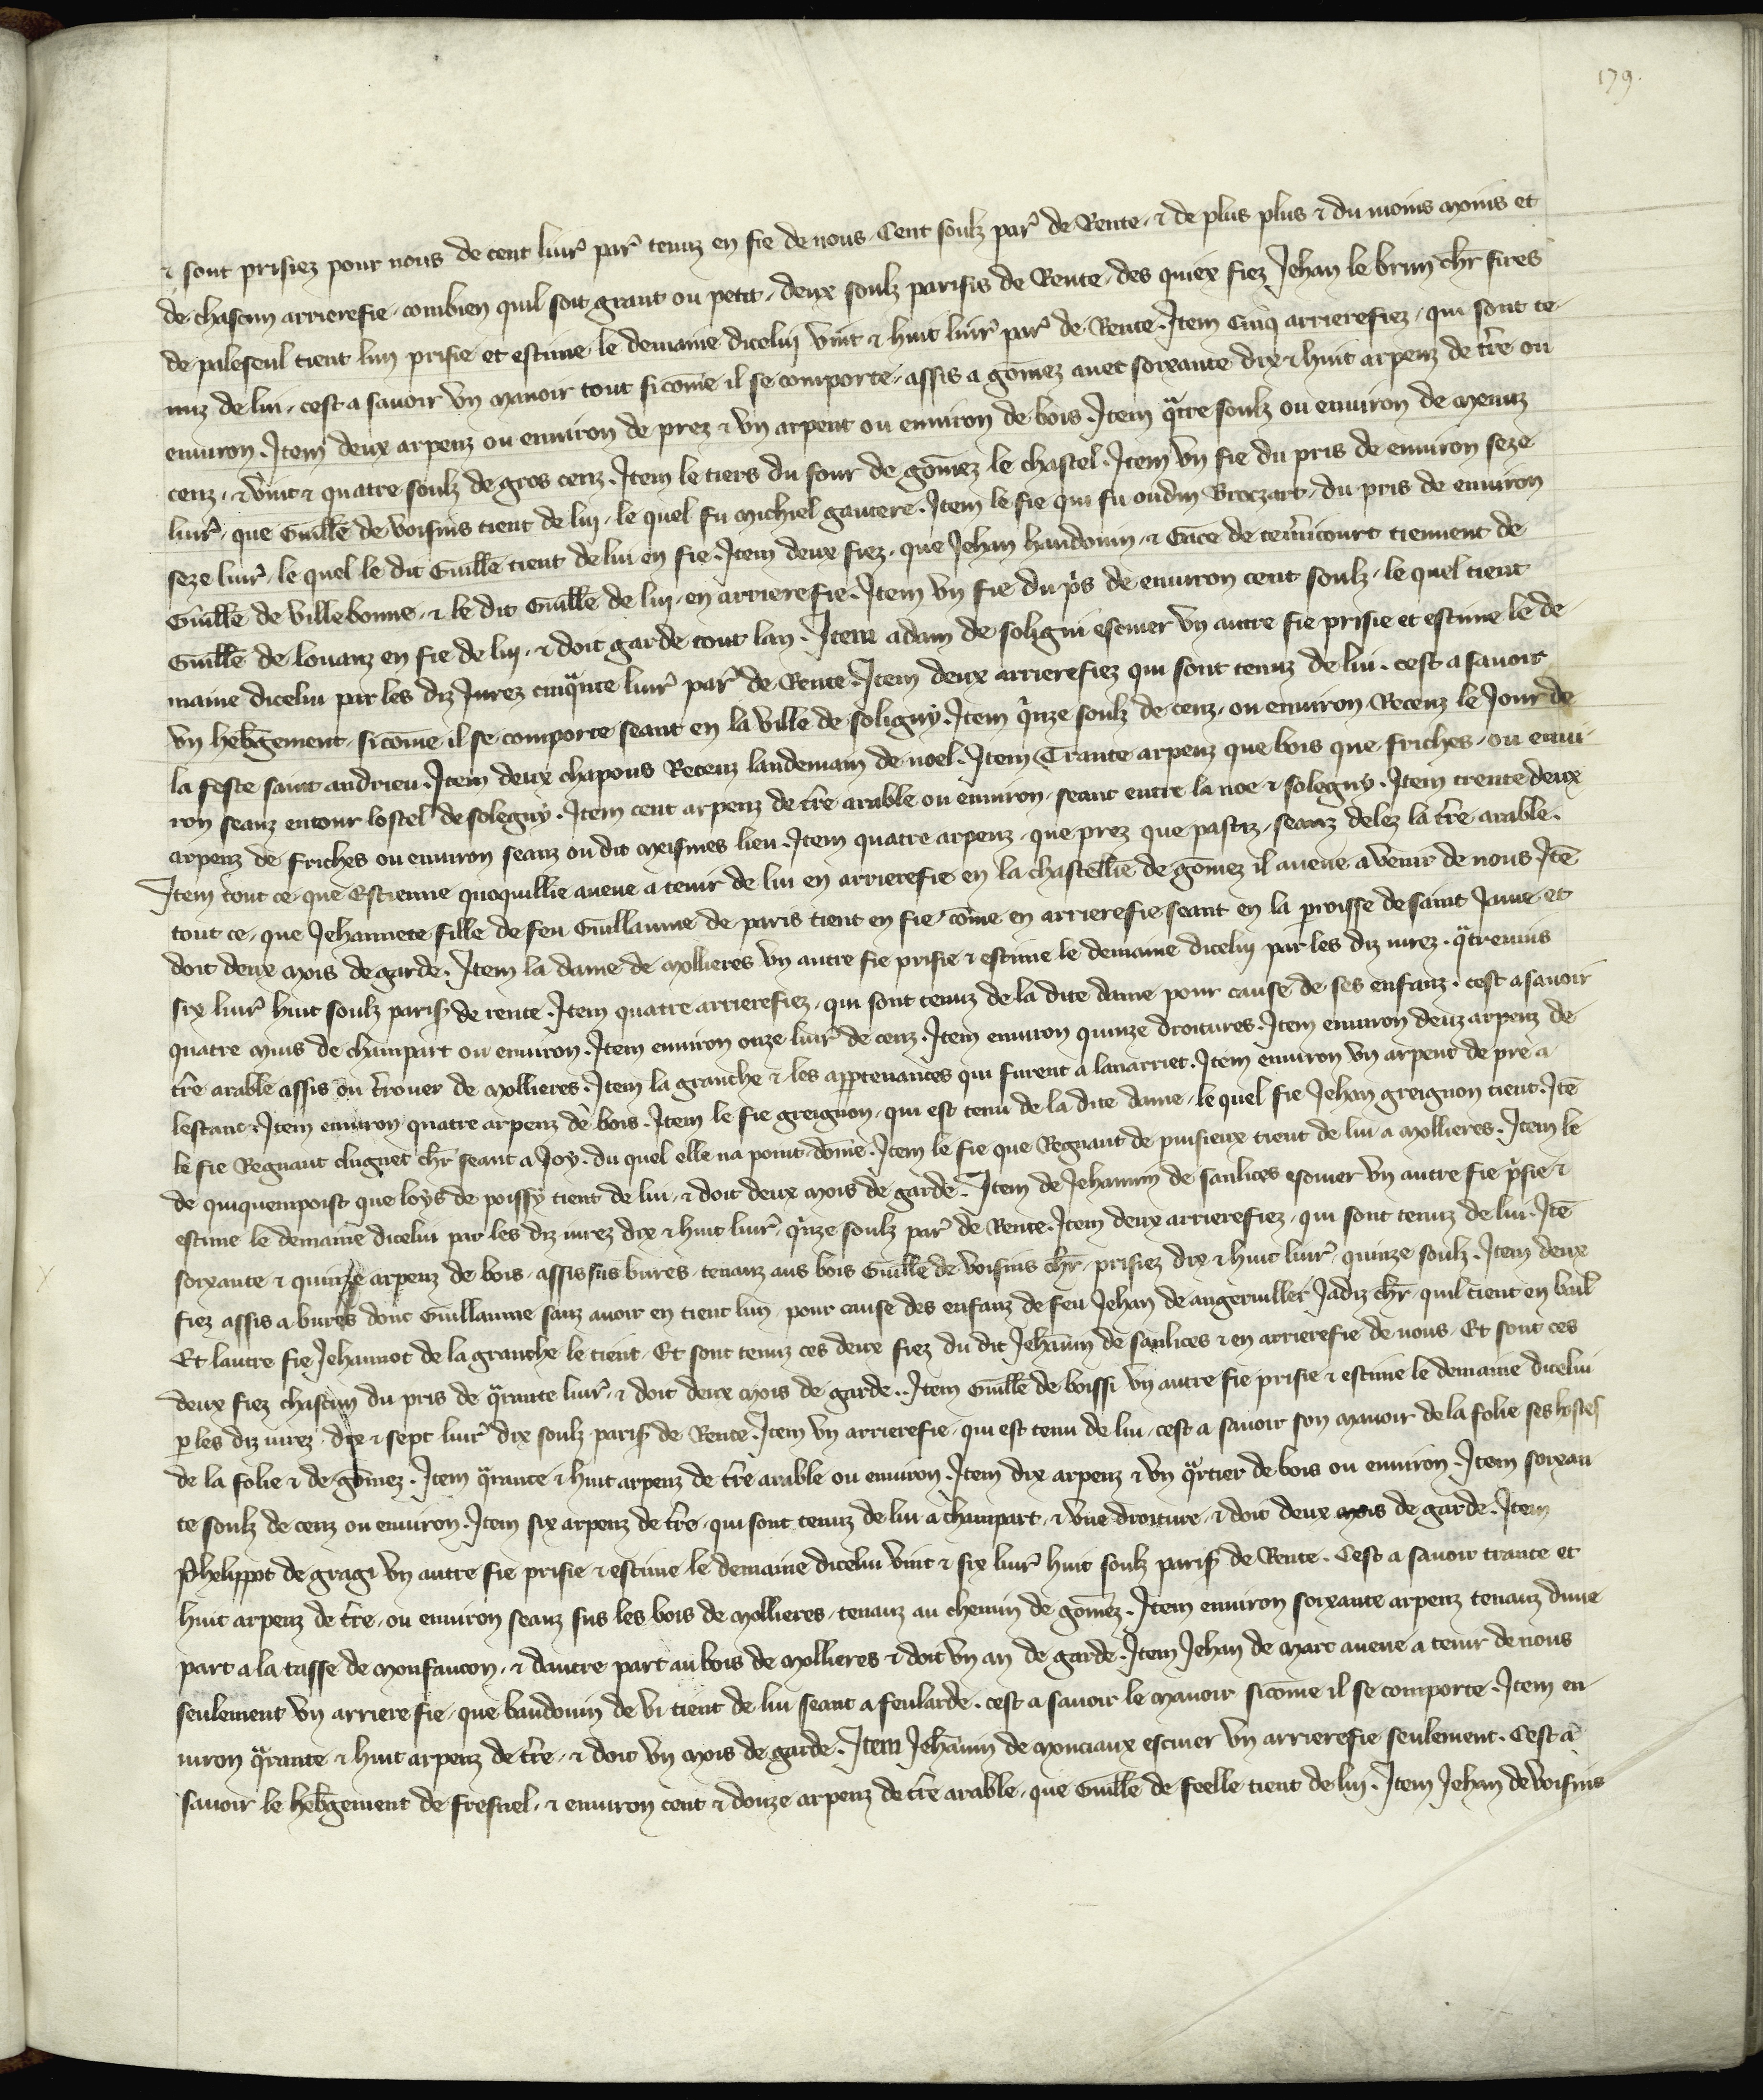 179.
⁊ sont prisiez pour nous de cent liur̾ par̾ tenuz en fie de nous. Cent soulz par̾ de Rente. ⁊ de plus plus ⁊ du moins moins et
de chascun arrierefie. combien quil soit grant ou petit. deux soulz parisis de Rente. des quiex fiez Jehan le brun chr̄ sires
de paleseul tient lun prisie et estime. le demaine dicelui vint ⁊ huit liur̾ par̾ de Rente. Item Cinq arrierefiez. qui sont te
nuz de lui. cest a sauoir vn manoir tout sicōme il se comporte. assis a gōmez auec soixante dix ⁊ huit arpenz de t̄re ou
enuiron. Item deux arpenz ou enuiron de prez ⁊ vn arpent ou enuiron de bois. Item qᵃtre soulz ou enuiron de menuz
cenz. ⁊ vint ⁊ quatre soulz de gros cenz. Item le tiers du four de gōmez le chastel. Item vn fie du pris de enuiron seze
liur̾. que Guill̄e de voisins tient de lui. le quel fu michiel gautere. Item le fie qui fu oudin Broczart. du pris de enuiron
seze liur̾. le quel le dit Guill̄e tient de lui en fie. Item deux fiez. que Jehan haudouin. ⁊ Gāce de tem̄icourt tiennent de
Guill̄e de villebonne. ⁊ le dit Guill̄e de lui. en arrierefie. Item vn fie du pⁱs de enuiron cent soulz. le quel tient
Guill̄e de louanz en fie de lui. ⁊ doit garde tout lan. Item adam de soligni escuier vn autre fie prisie et estime le de
maine dicelui par les diz Jurez cinqᵃnte liur̾ par̾ de Rente. Item deux arrierefiez qui sont tenuz de lui. cest a sauoir
vn heb̄gement. sicōme il se comporte seant en la ville de soligny. Item qⁱnze soulz de cenz. ou enuiron Recenz le Jour de
la feste saint andrieu. Item deux chapons Recenz landemain de noel. Item Trante arpenz que bois que friches. ou enui
ron seanz entour lostel de solegny. Item cent arpenz de t̄re arable ou enuiron. seant entre la noe ⁊ solegny. Item trente deux
arpenz de friches ou enuiron seanz ou dit meismes lieu. Item quatre arpenz. que prez que pastiz. seanz delez la t̄re arable.
Item tout ce que Estienne quoquillie aueue a tenir de lui en arrierefie en la chastell̄ie de gōmez il aueue a venir de nous. Itē
tout ce. que Jehannete fille de feu Guillaume de paris tient en fie cōme en arrierefie seant en la proisse de saint Jame et
doit deux mois de garde. Item la dame de mollieres vn autre fie prisie ⁊ estime le demaine dicelui par les diz iurez. qᵃtreuins
six liur̾ huit soulz parisⁱ de rente. Item quatre arrierefiez. qui sont tenuz de la dite dame pour cause de ses enfanz. cest a sauoir
quatre muis de champart ou enuiron. Item enuiron onze liur̾ de cenz. Item enuiron quinze droitures. Item enuiron deuz arpenz de
t̄re arable assis ou t̄rouer de mollieres. Item la granche ⁊ les app̄tenances qui furent a lanarriet. Item enuiron vn arpent de pre a
lestanc. Item enuiron quatre arpenz de bois. Item le fie greignon. qui est tenu de la dite dame. le quel fie Jehan greignon tient. Itē
le fie Regnaut clugnet chr̄ seant a Joy. du quel elle na point. dōme. Item le fie que Regnaut de puisieux tient de lui a mollieres. Item le
de quiquempoist que loys de poissy tient de lui. ⁊ doit deux mois de garde. Item de Jehannin de saulices escuier vn autre fie pⁱsie ⁊
estime le demaine dicelui par les diz iurez dix ⁊ huit liur̾. qⁱnze soulz par̾ de Rente. Item deux arrierefiez. qui sont tenuz de lui. Itē
soixante ⁊ quinze arpenz de bois. assis sus bures. tenanz aus bois Guill̄e de voisins chr̄. prisiez dix ⁊ huit liur̾. quinze soulz. Item deux
fiez assis a bures dont Guillaume sanz auoir en tient lun. pour cause des enfanz de feu Jehan de angeruillier Jadiz chr̄. quil tient en bail
Et lautre fie Jehannot de la granche le tient. Et sont tenuz ces deux fiez du dit Jehānin de saulices ⁊ en arrierefie de nous. Et sont ces
deux fiez chascun du pris de qᵃrante liur̾. ⁊ doit deux mois de garde.. Item Guill̄e de boissi vn autre fie prisie ⁊ estime le demaine dicelui
ꝑ les diz iurez. dix ⁊ sept liur̾ dix soulz parisⁱ de Rente. Item vn arrierefie. qui est tenu de lui. cest a sauoir son manoir de la folie ses hostes
de la folie ⁊ de gōmez. Item qᵃrante ⁊ huit arpenz de t̄re arable ou enuiron. Item dix arpenz ⁊ vn qᵃrtier de bois ou enuiron. Item soixan
te soulz de cenz ou enuiron. Item six arpenz de t̄re. qui sont tenuz de lui a champart. ⁊ vne droiture. ⁊ doit deux mois de garde. Item
Phelippot de gragi vn autre fie prisie ⁊ estime le demaine dicelui vint ⁊ six liur̾ huit soulz parisⁱ de Rente. Cest a sauoir trante et
huit arpenz de t̄re. ou enuiron seanz sus les bois de mollieres. tenanz au chemin de gōmez. Item enuiron soixante arpenz tenanz dune
part a la tasse de monfaucon. ⁊ dautre part au bois de mollieres ⁊ doit vn an de garde. Item Jehan de marc aueue a tenir de nous
seulement vn arriere fie. que baudouin de vi tient de lui seant a feularde. cest a sauoir le manoir sicōme il se comporte. Item en
uiron qᵃrante ⁊ huit arpenz de t̄re. ⁊ doit vn mois de garde. Item Jehānin de monciaux escuier vn arrierefie seulement. Cest a
sauoir le heb̄gement de fresnel. ⁊ enuiron cent ⁊ douze arpenz de t̄re arable. que Guill̄e de feelle tient de lui. Item Jehan de voisins